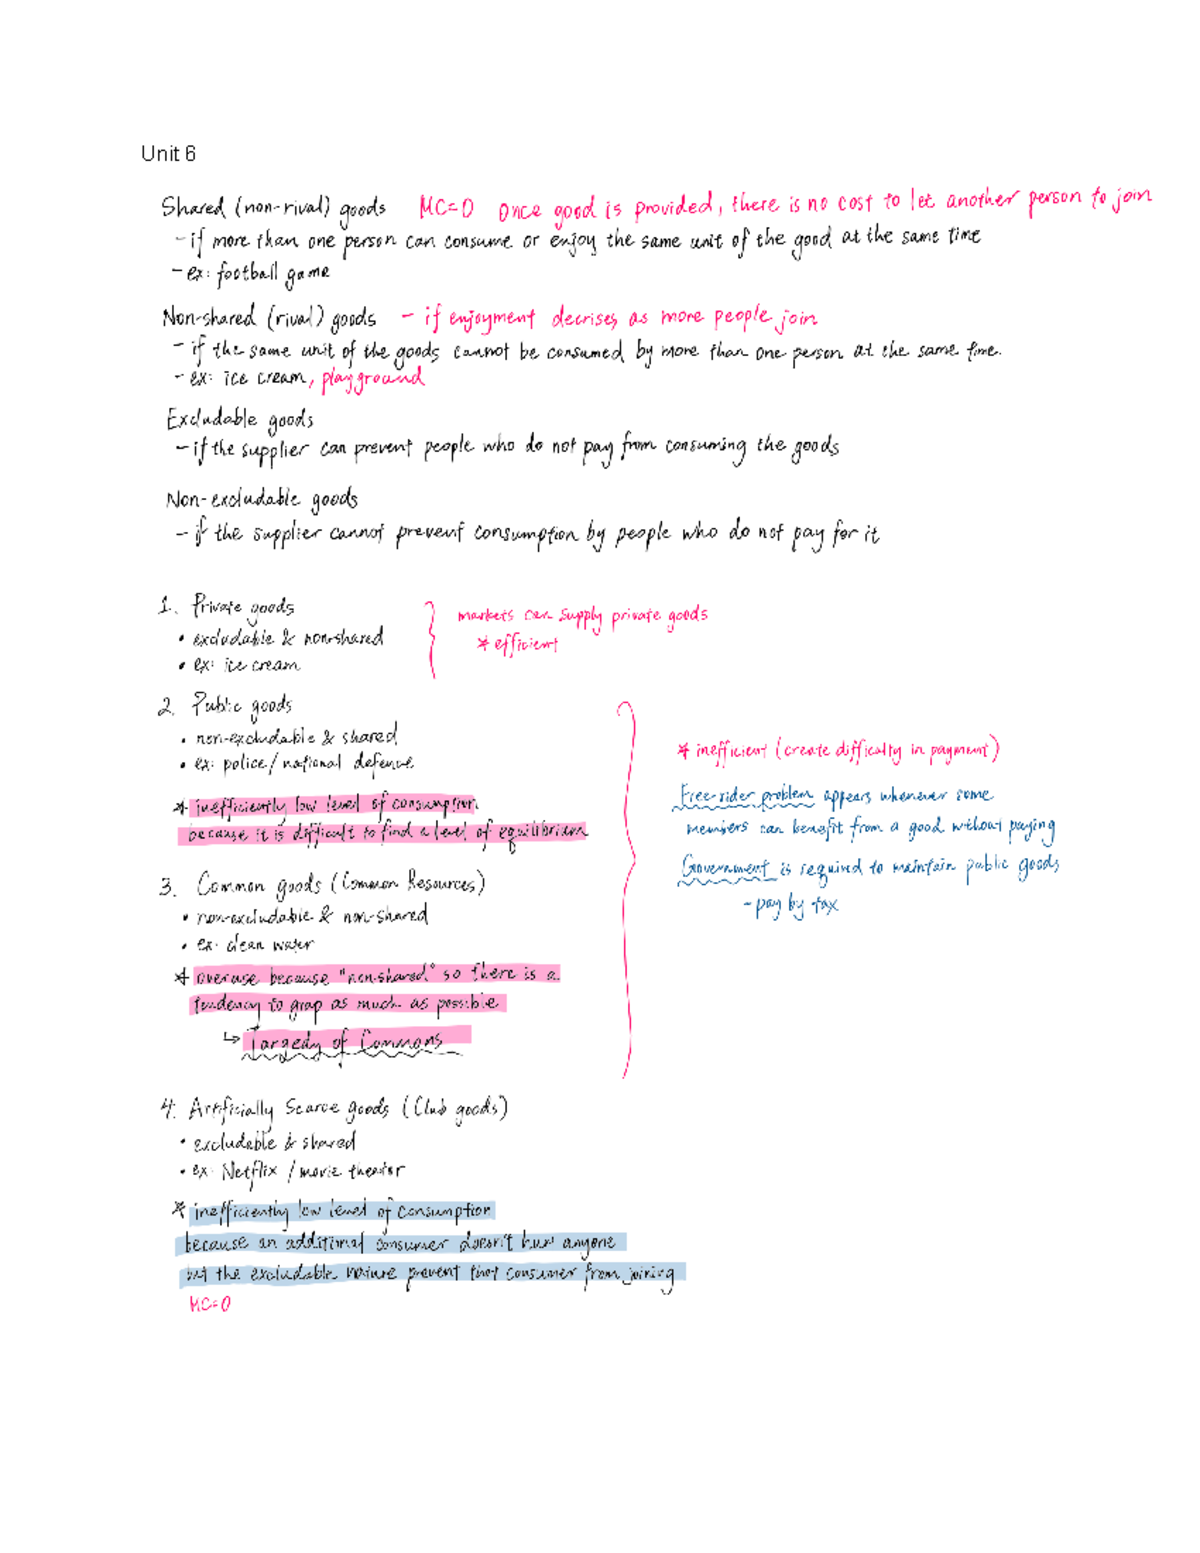 Unit 6
Shared (non-rival) goods MC=0 once good is provided, there is no cost to let another person to join
- if more than one person can consume or enjoy the same unit of the good at the same time
- ex: football game
Non-shared (rival) goods - if enjoyment decrises as more people join
- if the same unit of the goods cannot be consumed by more than one person at the same time.
- ex: ice cream, playground
Excludable goods
- if the supplier can prevent people who do not pay from consuming the goods
Non-excludable goods
- if the supplier cannot prevent consumption by people who do not pay for it
1. Private goods
• excludable & nonshared
• ex: ice cream
markets can supply private goods
* efficient
2. Public goods
• non-excludable & shared
• ex: police/national defence
* inefficiently low level of consumption
because it is difficult to find a level of equilibrium
3. Common goods (Common Resources)
• non-excludable & non-shared
• ex: clean water
* overuse because "non-shared" so there is a
tendency to grap as much as possible
↳ Targedy of Commons
* inefficient (create difficalty in payment)
Free-rider problem appears whenever some
members can benefit from a good without paying
Government is required to maintain public goods
- pay by tax
4. Artificially Scarce goods (Club goods)
• excludable & shared
• ex: Netflix / movie theater
* inefficiently low level of consumption
because an additional consumer doesn't hurt anyone
but the excludable nature prevent that consumer from joining
MC=0